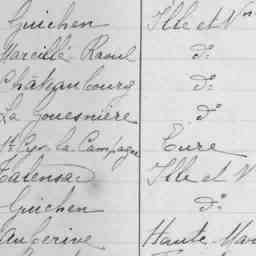 Guichen Ille et V
Marcillé Raoul d°
Châteaubourg d°
La Gouesnière d°
St Cyr la Campagne Eure
Talensac Ille et V
Guichen d°
Auberive Haute Mar